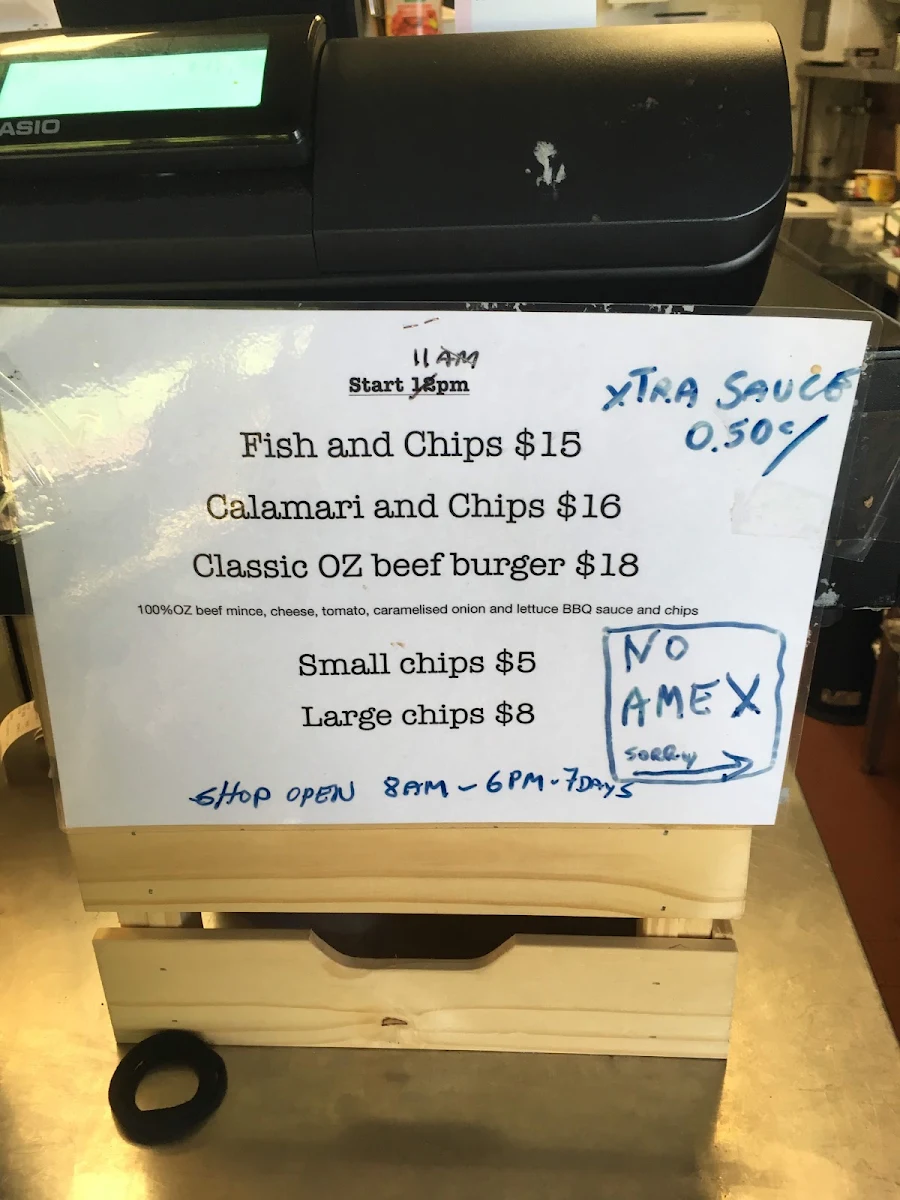 ASIO
11 AM
Start 12pm
XTRA SAUCE
0.50c/
Fish and Chips $15
Calamari and Chips $16
Classic OZ beef burger $18
100%OZ beef mince, cheese, tomato, caramelised onion and lettuce BBQ sauce and chips
Small chips $5
Large chips $8
NO
AMEX
SORRY
SHOP OPEN 8AM - 6PM - 7 DAYS